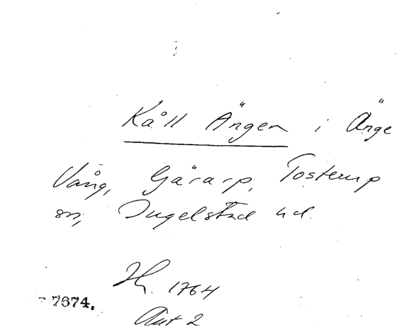 Kåll Ängen i Änge
Vång, Gärarp, Tosterup
sn, Ingelstad hd.
1764
7674.
Akt 2